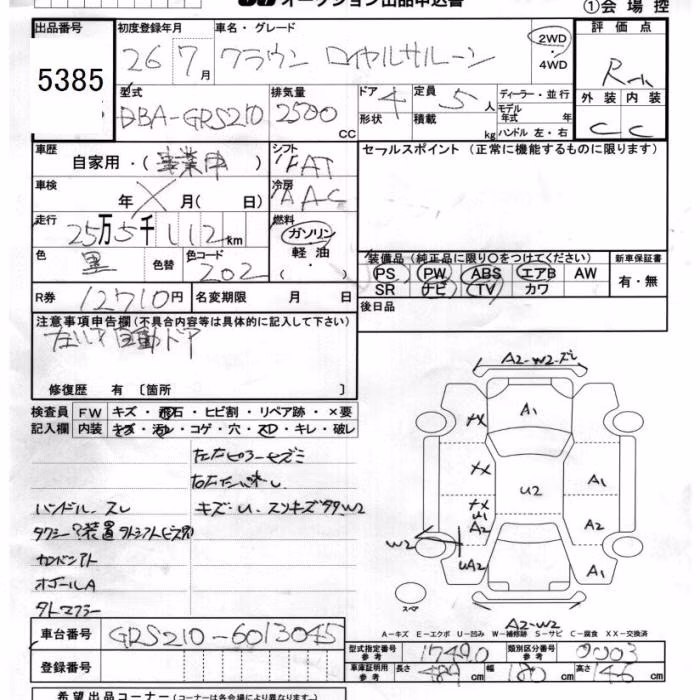 オークション出品申込書
①会場控
出品番号 初度登録年月 車名・グレード 評価点
5385 26年 7月 クラウン ロイヤルサルーン 2WD ・4WD
型式 排気量 ドア 定員 ディーラー・並行
DBA-GRS210 2500 CC 4 5人 モデル年式 年
形状 積載 kg ハンドル 左・右
外装 内装
C C
車歴 自家用・(事業用) シフト FAT
セールスポイント (正常に機能するものに限ります)
車検 年 月(日) 冷房 AAC
走行 25万5千112km 燃料 ガソリン 軽油・( )
色 黒 色替 色コード 202
装備品(純正品に限り〇をつけてください) 新車保証書
PS PW ABS エアB AW 有・無
SR ナビ TV カワ
R券 12710円 名変期限 月 日
後日品
注意事項申告欄(不具合内容等は具体的に記入して下さい)
左リア自動ドア
修復歴 有 〔箇所 〕
検査員 FW キズ・飛石・ヒビ割・リペア跡・×要
記入欄 内装 キズ・汚レ・コゲ・穴・スレ・キレ・破レ
ハンドル スレ
キズ・U・スリキズ多々W2
A2-W2-ズレ
A1
XX
XX
U2
A1
XX
U1
A2
A2
W2
UA2
A1
スペア
A2-W2
A-キズ E-エクボ U-凹み W-補修跡 S-サビ C-腐食 XX-交換済
車台番号 GRS210-6013045
型式指定番号 参考 17490 類別区分番号 参考 0003
登録番号
車庫証明用 参考 長さ 489cm 幅 180cm 高さ 146cm
希望出品コーナー(コーナーは各会場により異なります。)